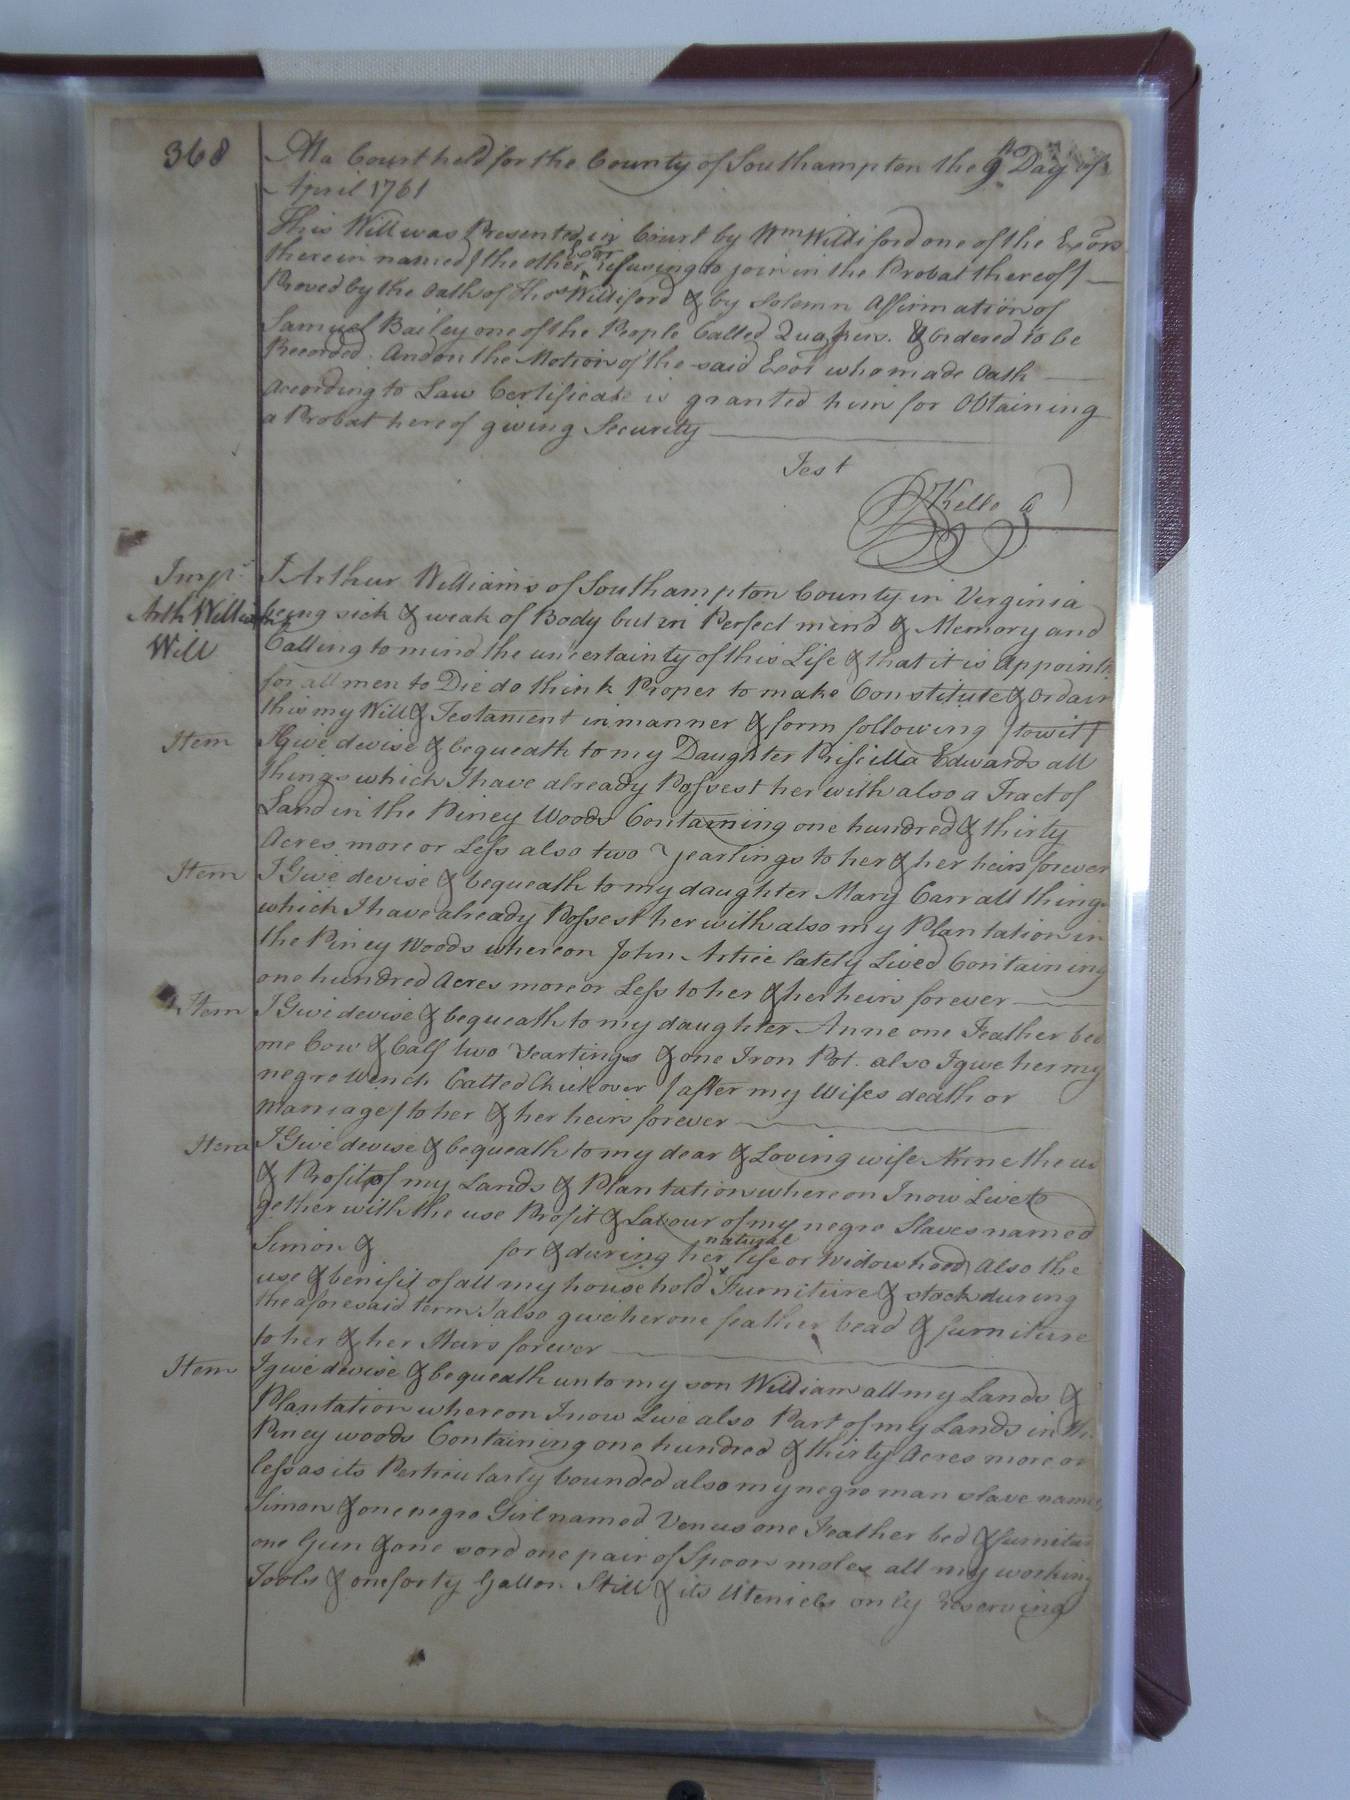 368
At a Court held for the County of Southampton the 9th Day of
April 1761
This Will was Presented in Court by Wm Williford one of the Exors
therein named (the other Exor refusing to join in the Probat thereof)
Proved by the Oath of Thos Williford & by Solemn Affirmation of
Samuel Bailey one of the People Called Quakers. & Ordered to be
Recorded. And on the Motion of the said Exor who made Oath
According to Law Certificate is granted him for Obtaining
a Probat hereof giving Security
Test
Kello
Impr I Arthur Williams of Southampton County in Virginia
Arth Williams being sick & weak of Body but in Perfect mind & Memory and
Will Calling to mind the uncertainty of this Life & that it is appointd
for all men to Die do think Proper to make Constitute & Ordain
this my Will & Testament in manner & form following (towit)
Item I give devise & bequeath to my Daughter Priscilla Edwards all
things which I have already Possest her with also a Tract of
Land in the Piney Woods Containing one hundred & thirty
Acres more or Less also two yearlings to her & her heirs forever
Item I Give devise & bequeath to my daughter Mary Carr all things
which I have already Possest her with also my Plantation in
the Piney Woods whereon John Artice lately Lived Containing
one hundred Acres more or Less to her & her heirs forever
Item I Give devise & bequeath to my daughter Anne one Feather bed
one Cow & Calf two Yearlings & one Iron Pot. also I give her my
negro Wench Called (after my Wifes death or
marriage) to her & her heirs forever
Item I Give devise & bequeath to my dear & Loving wife Anne the us
& Profits of my Lands & Plantation whereon I now Live to
gether with the use Profit & Labour of my negro Slaves named
Simon & for & during her natural life or Widowhood also the
use & benifit of all my household Furniture & stock during
the aforesaid term I also give her one feather bead & furniture
to her & her Heirs forever
Item I give devise & bequeath unto my son William all my Lands &
Plantation whereon I now Live also Part of my Lands in the
Piney woods Containing one hundred & thirty Acres more or
less as its Perticularly bounded also my negro man slave named
Simon & one negro Girl named Venus one Feather bed & furnitur
one Gun & one sord one pair of Spoon moles all my working
Tools & one forty Gallon Still & its Uteniels only reserving